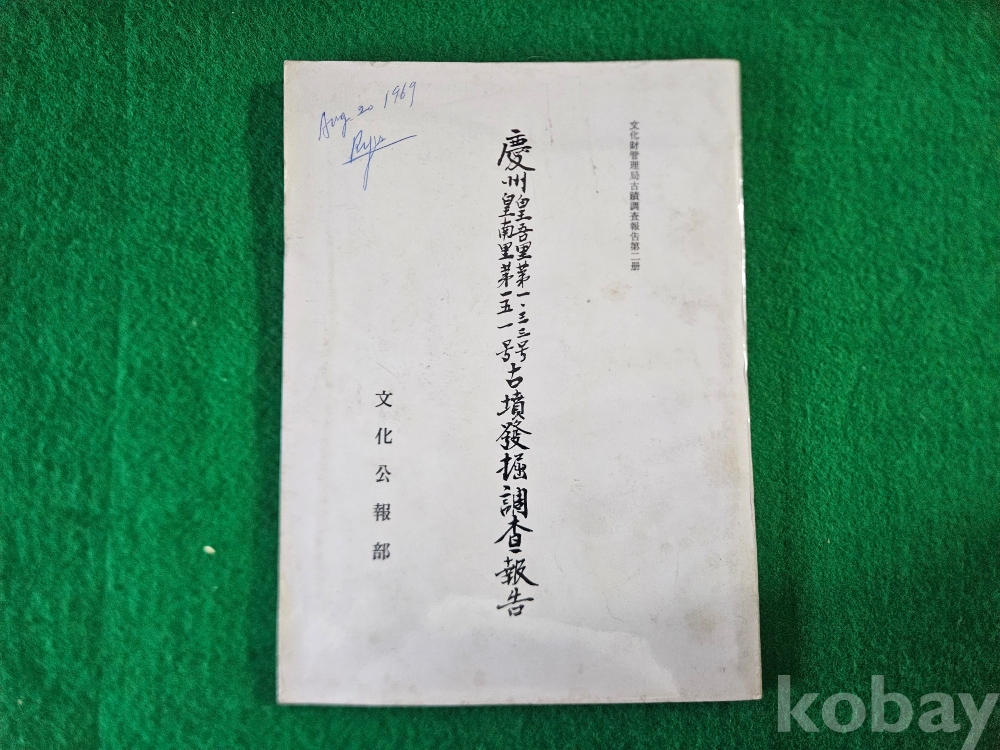 文化財管理局古蹟調査報告第二册
慶州
皇吾里第一・三三号
皇南里第一五一号
古墳發掘調査報告
文化公報部
Aug. 20 1969
kobay